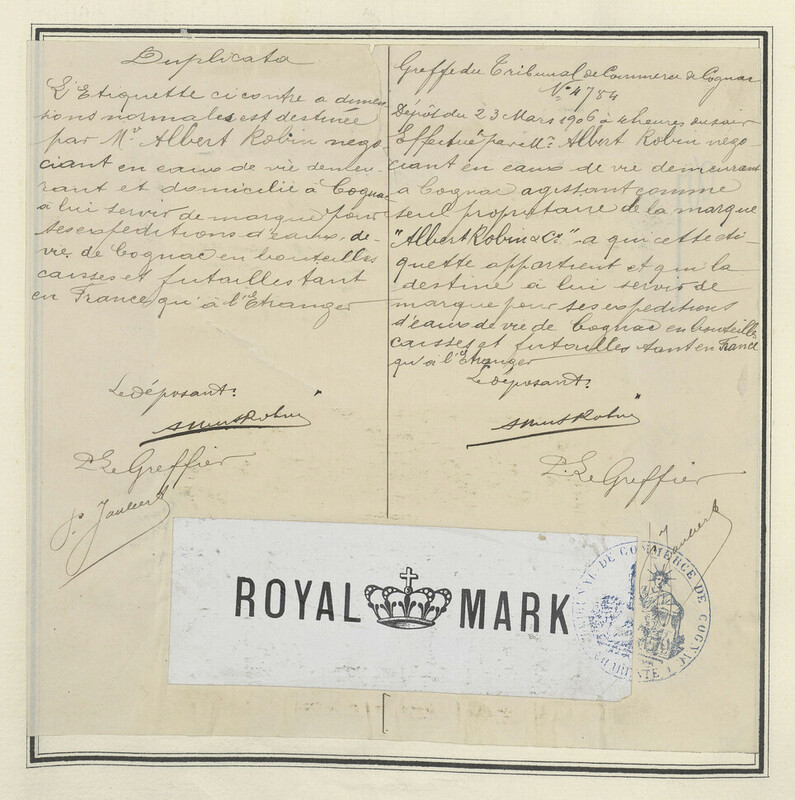 Duplicata
L'Etiquette ci contre a dimen-
tions normales est destinée
par Mr Albert Robin négo-
ciant en eaux de vie demeu-
rant et domicilié à Cognac
à lui servir de marque pour
ses expéditions d'eaux-de-
vie de Cognac en bouteilles
caisses et futailles tant
en France, qu'à l'Etranger
Le déposant:
Albert Robin
P. Le Greffier
Greffe du Tribunal de Commerce de Cognac
No 4784
Dépôt du 23 Mars 1906 à 4 heures du soir
Effectué par Mr. Albert Robin négo-
ciant en eaux de vie demeurant
a Cognac agissant comme
seul propriétaire de la marque
"Albert Robin & Co" a qui cette éti-
quette appartient et qui la
destine à lui servir de
marque pour ses expéditions
d'eaux de vie de Cognac en bouteilles
caisses et futailles tant en France
qu'à l'Etranger
Le déposant:
Albert Robin
P. Le Greffier
ROYAL MARK
TRIBUNAL DE COMMERCE DE COGNAC
CHARENTE